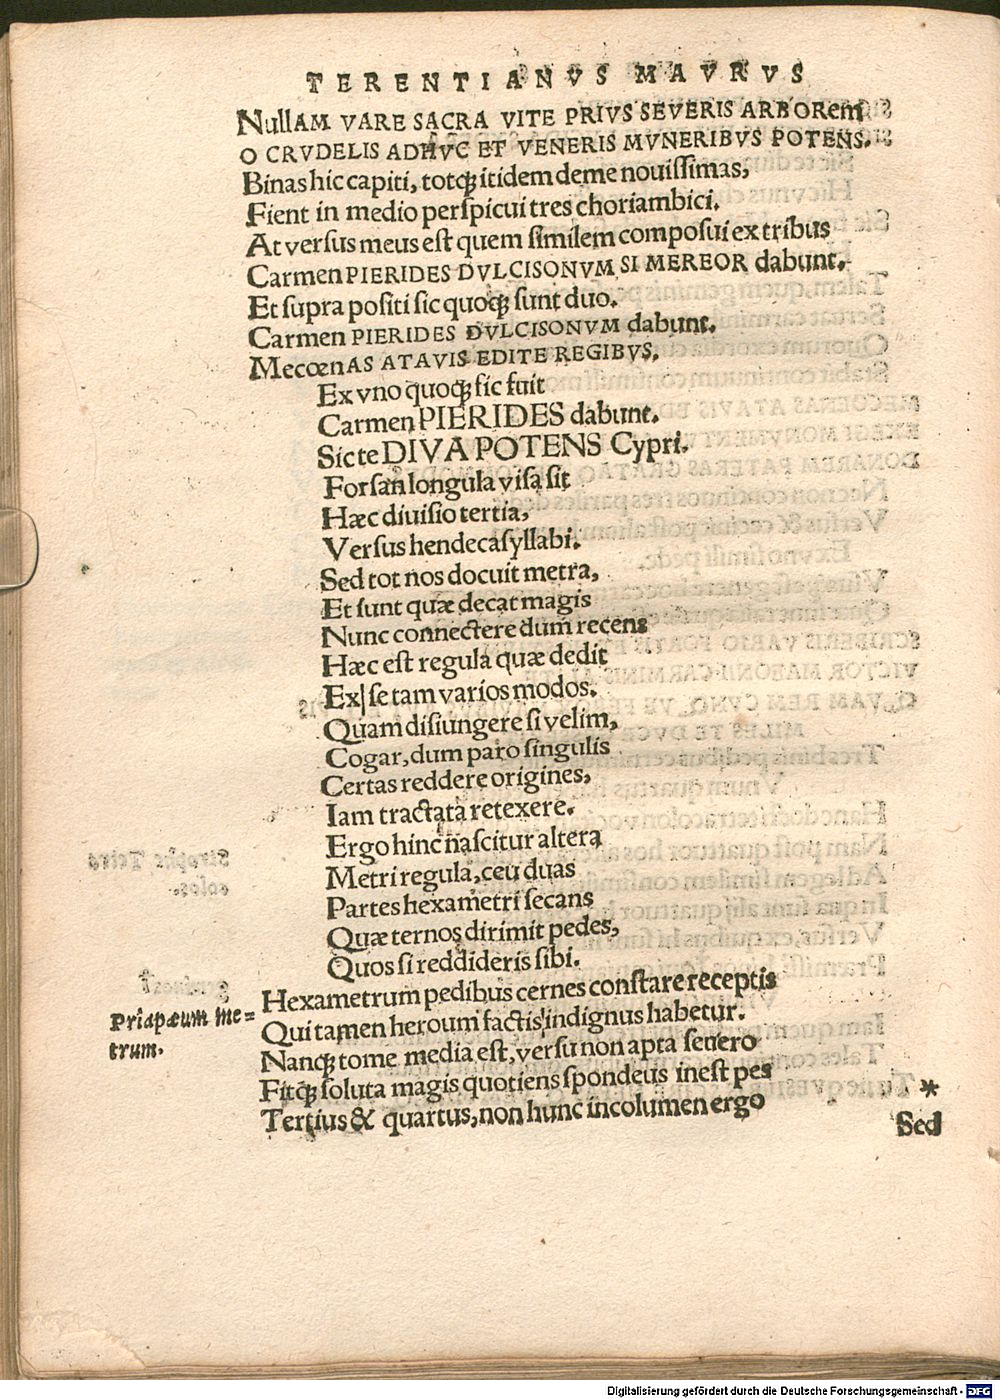 TERENTIANVS MAVRVS
NullAM VARE SACRA VITE PRIVS SEVERIS ARBORem
O CRVDELIS ADHVC ET VENERIS MVNERIBVS POTENS.
Binas hic capiti, totq́ꝫ itidem deme nouissimas,
Fient in medio perspicui tres choriambici.
At versus meus est quem similem composui ex tribus
Carmen PIERIDES DVLCISONVM SI MEREOR dabunt.
Et supra positi sic quoq́ꝫ sunt duo.
Carmen PIERIDES DVLCISONVM dabunt.
MecœnAS ATAVIS EDITE REGIBVS.
Ex vno quoq́ꝫ sic fuit
Carmen PIERIDES dabunt.
Sic te DIVA POTENS Cypri.
Forsan longula visa sit
Hæc diuisio tertia,
Versus hendecasyllabi.
Sed tot nos docuit metra,
Et sunt quæ decat magis
Nunc connectere dum recens
Hæc est regula quæ dedit
Ex se tam varios modos.
Quam disiungere si velim,
Cogar, dum paro singulis
Certas reddere origines,
Iam tractata retexere.
Ergo hinc nascitur altera
Metri regula, ceu duas
Partes hexametri secans
Quæ ternos dirimit pedes,
Quos si reddideris sibi.
Hexametrum pedibus cernes constare receptis
Priapæum me=
trum.
Qui tamen heroum factis indignus habetur.
Nanq́ꝫ tome media est, versu non apta seuero
Fitq́ꝫ soluta magis quotiens spondeus inest pes
Tertius & quartus, non hunc incolumen ergo
*
Sed
Digitalisierung gefördert durch die Deutsche Forschungsgemeinschaft - DFG